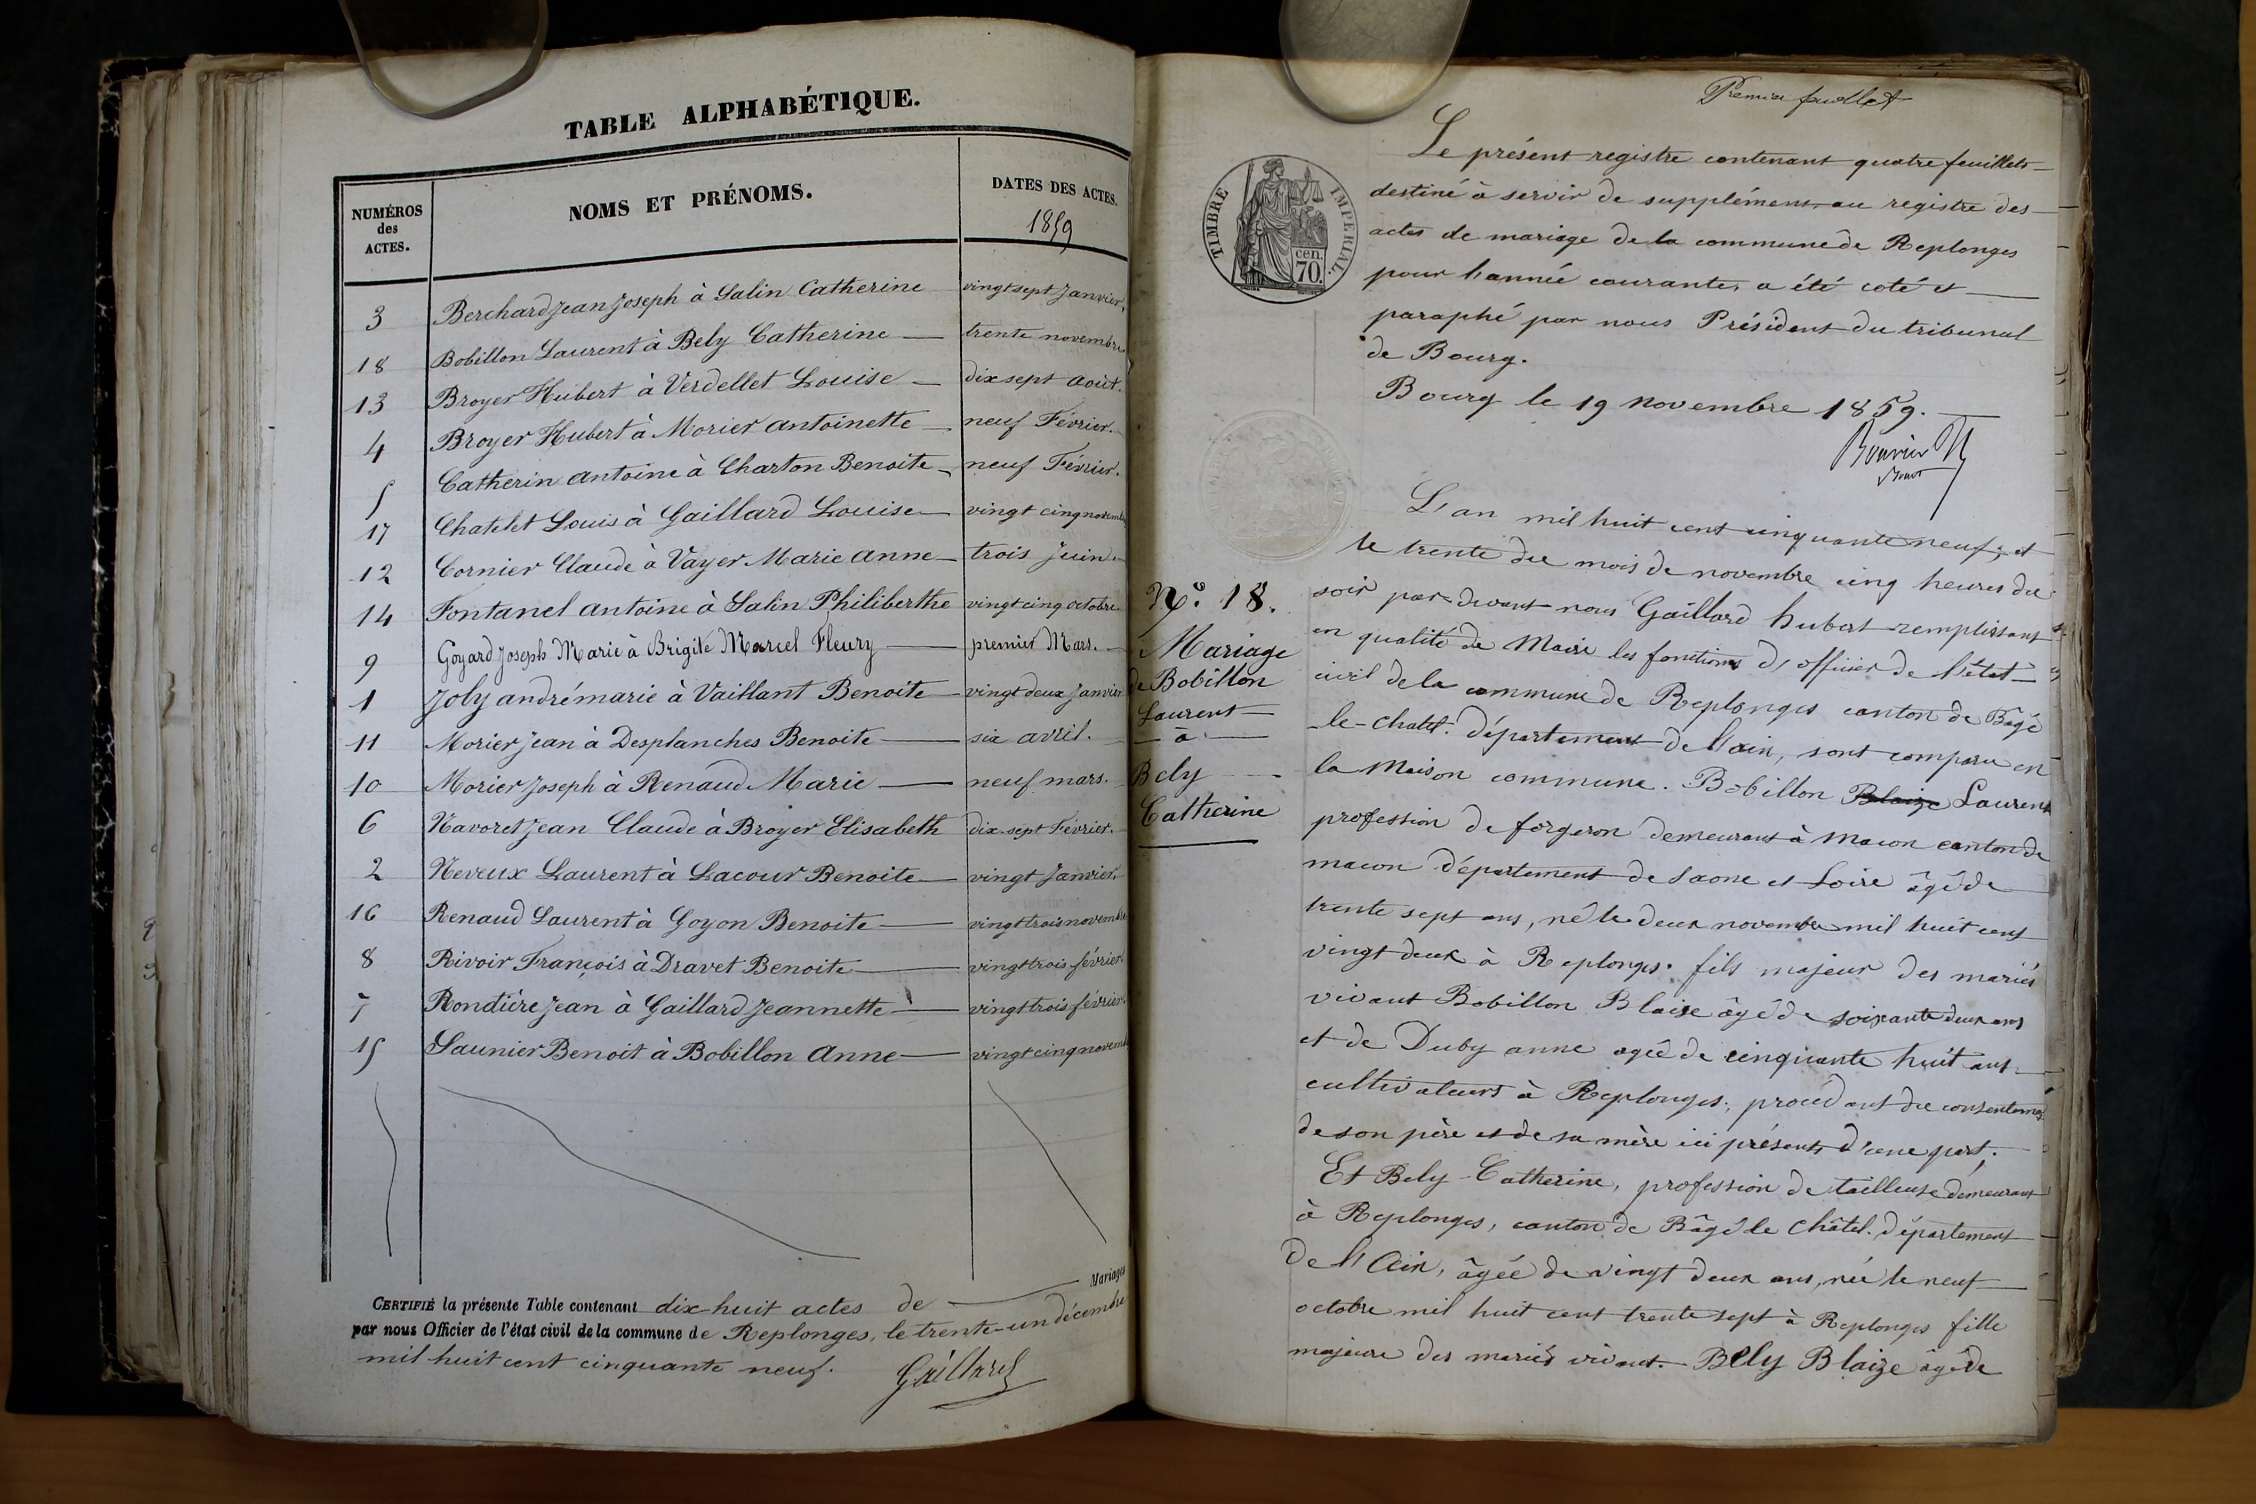 TABLE ALPHABÉTIQUE.
NUMÉROS des ACTES.
NOMS ET PRÉNOMS.
DATES DES ACTES.
1859
3 Berchard Jean Joseph à Salin Catherine vingt sept Janvier,
18 Bobillon Laurent à Bely Catherine — trente novembre
13 Broyer Hubert à Verdellet Louise — dix sept août.
4 Broyer Hubert à Morier antoinette — neuf Février.
5 Catherin antoine à Charton Benoite — neuf Février.
17 Chatelet Louis à Gaillard Louise — vingt cinq novembre
12 Cornier Claude à Vayer Marie anne — trois Juin.
14 Fontanel antoine à Salin Philiberthe vingt cinq octobre
9 Goyard Joseph Marie à Brigite Marcel Fleury — premier Mars. —
1 Joly andré marie à Vaillant Benoite — vingt deux Janvier
11 Morier Jean à Desplanches Benoite — six avril. —
10 Morier Joseph à Renaud Marie — neuf mars. —
6 Navoret Jean Claude à Broyer Elisabeth dix-sept Février. —
2 Neveux Laurent à Lacour Benoite — vingt Janvier.
16 Renaud Laurent à Goyon Benoite — vingt trois novembre
8 Rivoir François à Dravet Benoite — vingt trois février.
7 Rondière Jean à Gaillard Jeannette — vingt trois février.
15 Saunier Benoit à Bobillon Anne — vingt cinq novemb
CERTIFIÉ la présente Table contenant dix-huit actes de — Mariages
par nous Officier de l'état civil de la commune de Replonges, le trente-un décembre
mil huit cent cinquante neuf.
Gaillard
Premier feuillet
TIMBRE IMPERIAL.
cen.
70.
Le présent registre contenant quatre feuillets
destiné à servir de supplément au registre des
actes de mariage de la commune de Replonges
pour l'année courante, a été coté et
paraphé par nous Président du tribunal
de Bourg.
Bourg le 19 novembre 1859.
L'an mil huit cent cinquante neuf, et
le trente du mois de novembre cinq heures du
soir par devant nous Gaillard hubert remplissant
en qualité de Maire les fonctions d'officier de l'état
civil de la commune de Replonges canton de Bâgé
le-chatel. département de l'ain, sont comparu en
la Maison commune. Bobillon Blaize Laurent
profession de forgeron demeurant à Macon canton de
macon département de Saone et Loire âgé de
trente sept ans, né le deux novembre mil huit cent
vingt deux à Replonges. fils majeur des mariés
vivant Bobillon Blaise âgé de soixante deux ans
et de Duby anne agée de cinquante huit ans
cultivateurs à Replonges, procédant du consentement
de son père et de sa mère ici présents, d'une part.
Et Bely Catherine, profession de tailleuse demeurant
à Replonges, canton de Bâgé le Châtel. département
de l'Ain, âgée de vingt deux ans, née le neuf
octobre mil huit cent trente sept à Replonges fille
majeure des mariés vivant. Bely Blaize âgé de
N.º 18.
Mariage
de Bobillon
Laurent
— à —
Bely
Catherine